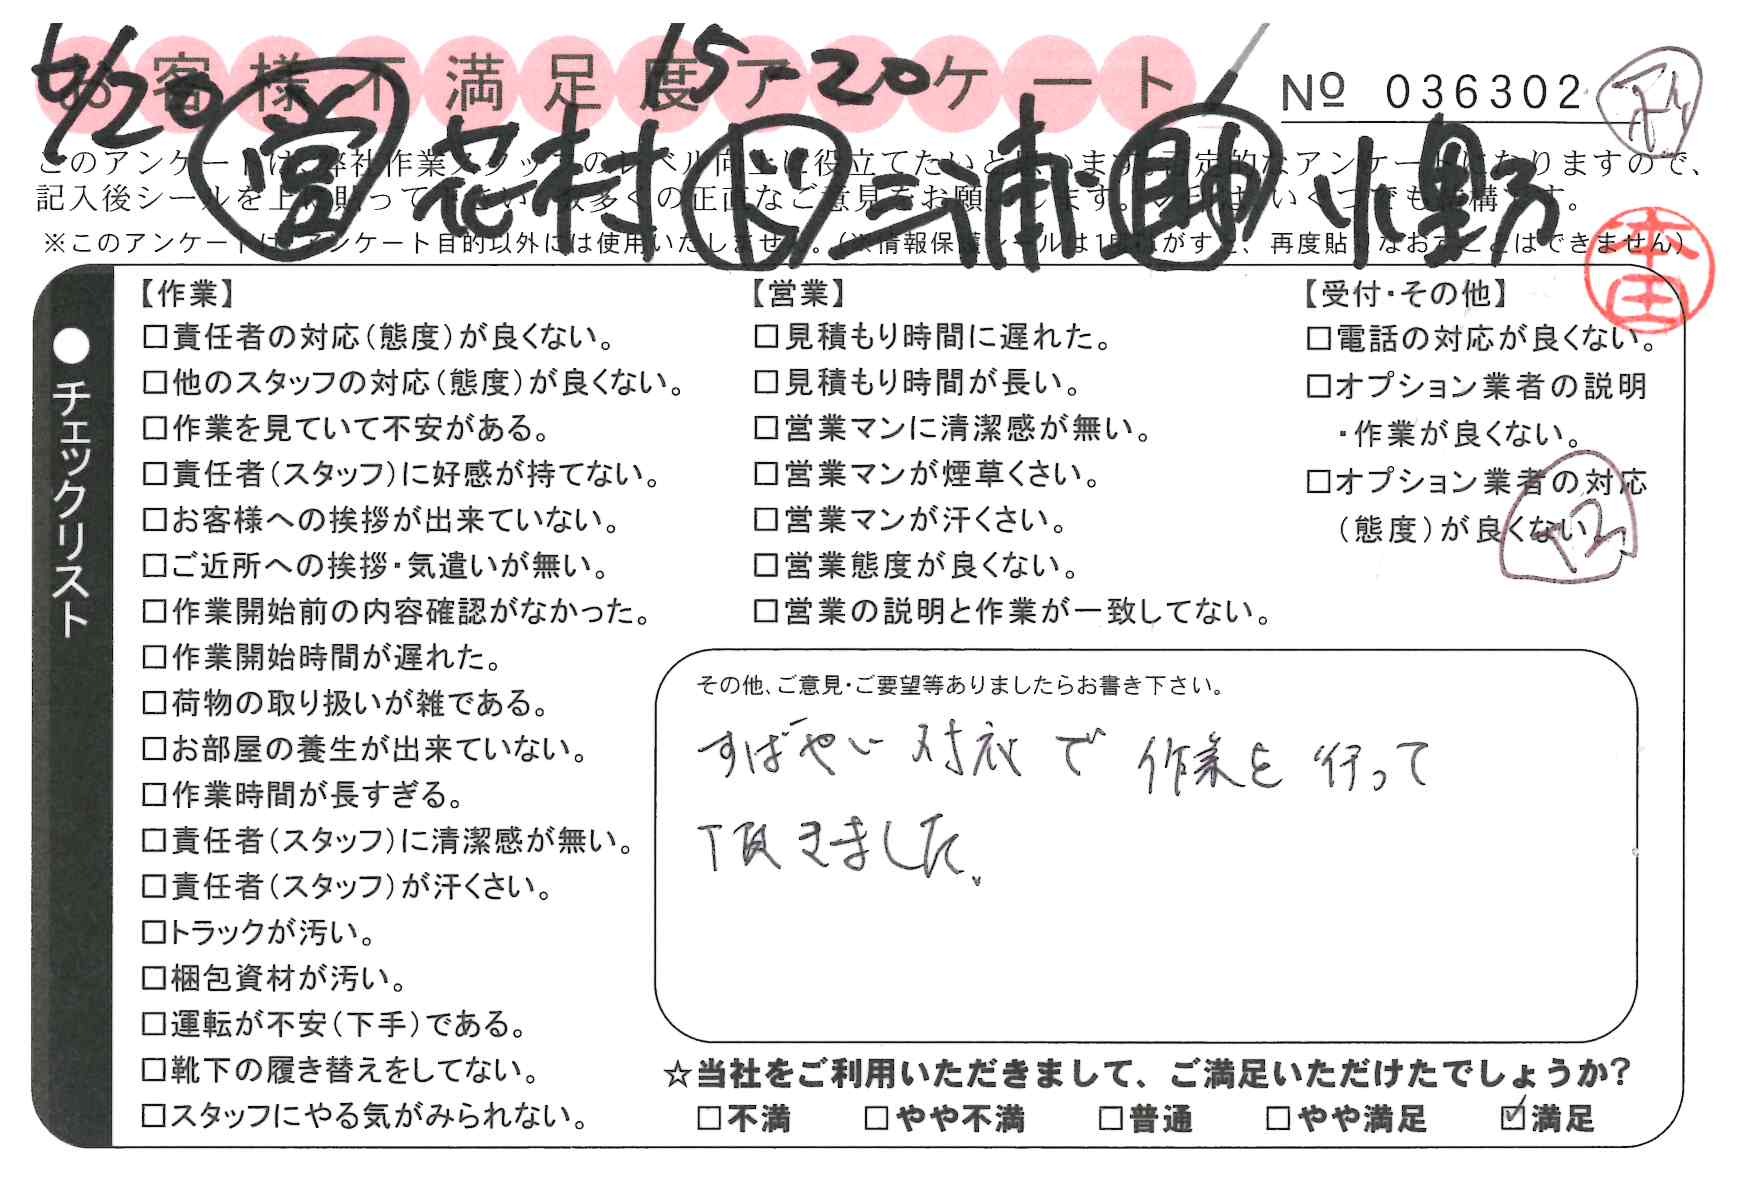 6/20 15-20
お客様不満足度アンケート
№ 036302
営 花村 ド 三浦 助 小野
このアンケートは、弊社作業スタッフのレベル向上に役立てたいと思います。否定的なアンケートになりますので、
記入後シールを上に貼って下さい。数多くの正直なご意見をお願いします。シールはいくつでも結構です。
※このアンケートは、アンケート目的以外には使用いたしません。(※情報保護シールは1度はがすと、再度貼りなおすことはできません)
本田
●チェックリスト
【作業】
□責任者の対応(態度)が良くない。
□他のスタッフの対応(態度)が良くない。
□作業を見ていて不安がある。
□責任者(スタッフ)に好感が持てない。
□お客様への挨拶が出来ていない。
□ご近所への挨拶・気遣いが無い。
□作業開始前の内容確認がなかった。
□作業開始時間が遅れた。
□荷物の取り扱いが雑である。
□お部屋の養生が出来ていない。
□作業時間が長すぎる。
□責任者(スタッフ)に清潔感が無い。
□責任者(スタッフ)が汗くさい。
□トラックが汚い。
□梱包資材が汚い。
□運転が不安(下手)である。
□靴下の履き替えをしてない。
□スタッフにやる気がみられない。
【営業】
□見積もり時間に遅れた。
□見積もり時間が長い。
□営業マンに清潔感が無い。
□営業マンが煙草くさい。
□営業マンが汗くさい。
□営業態度が良くない。
□営業の説明と作業が一致してない。
【受付・その他】
□電話の対応が良くない。
□オプション業者の説明
・作業が良くない。
□オプション業者の対応
(態度)が良くない。
その他、ご意見・ご要望等ありましたらお書き下さい。
すばやい対応で作業を行って
頂きました。
☆当社をご利用いただきまして、ご満足いただけたでしょうか?
□不満 □やや不満 □普通 □やや満足 ☑満足